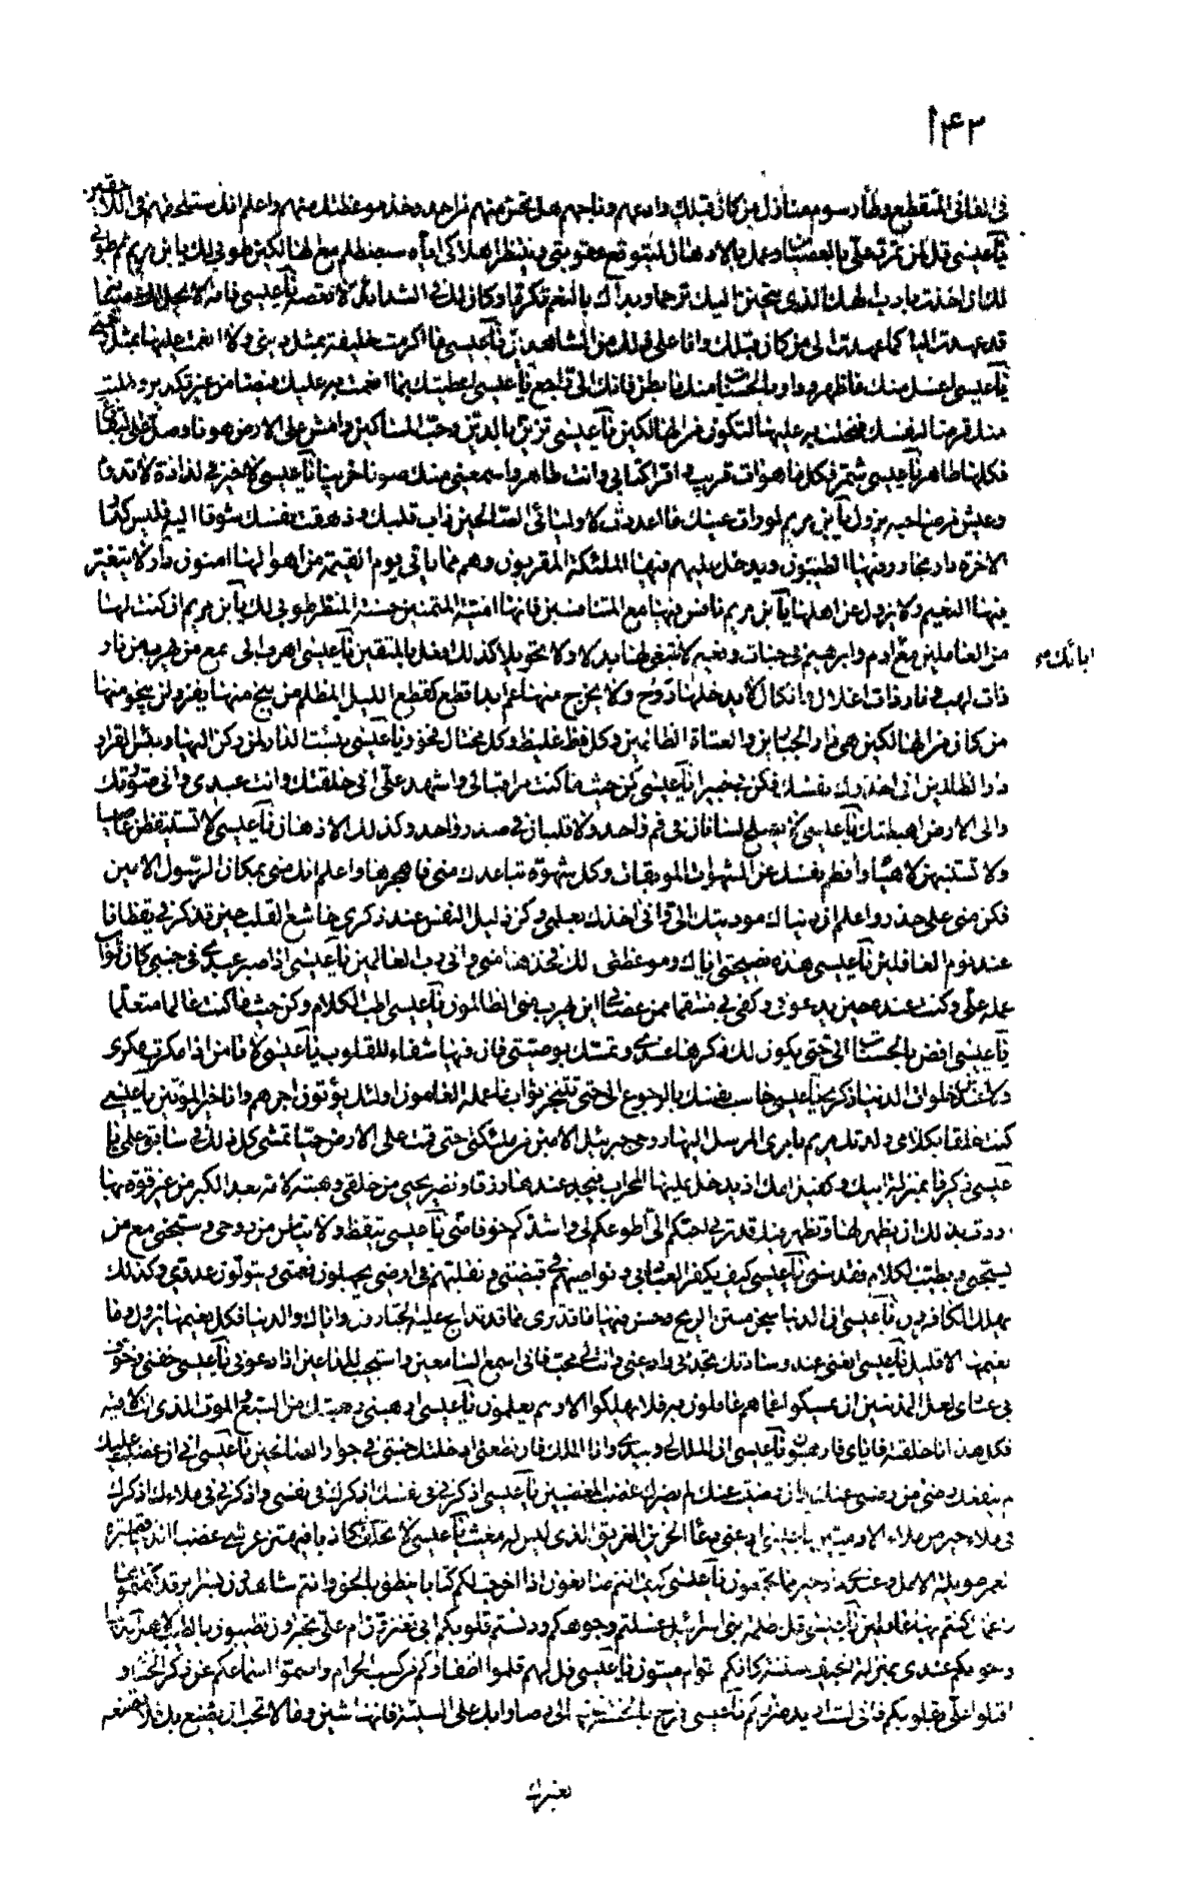 ١٤٣
في الفاني المنقطع وطأ رسوم منازل من كان قبلك وادعهم وناجهم هل تحس منهم من احد وخذ موعظتك منهم واعلم انك ستلحقهم في اللاحقين
يا عيسى قل لمن تمرد علي بالعصيان وعمل بالادهان ليتوقع عقوبتي وينتظر اهلاكي اياه سيصطلم مع الهالكين طوبى لك يابن مريم ثم طوبى
لك ان اخذت بادب الهك الذي يتحنن عليك ترحما وبدأك بالنعم تكرما وكان لك في الشدائد لا تعصه يا عيسى فانه لا يحل لك عصيانه
قد عهدت اليك كما عهدت الى من كان قبلك وانا على ذلك من الشاهدين يا عيسى ما اكرمت خليقة بمثل ديني ولا انعمت عليها بمثل رحمتي
يا عيسى اغسل بالماء منك ما ظهر وداو بالحسنات منك ما بطن فانك الي راجع يا عيسى اعطيتك بما انعمت به عليك فيضا من غير تكدير وطلبت
منك قرضا لنفسك فبخلت به عليها لتكون من الهالكين يا عيسى تزين بالدين وحب المساكين وامش على الارض هونا وصل على البقاع
فكلها طاهر يا عيسى شمر فكل ما هو ات قريب واقرأ كتابي وانت طاهر واسمعني منك صوتا حزينا يا عيسى لا خير في لذاذة لا تدوم
وعيش من صاحبه يزول يابن مريم لو رات عينك ما اعددت لاوليائي الصالحين ذاب قلبك وزهقت نفسك شوقا اليه فليس كدار
الاخرة دار تجاور فيها الطيبون ويدخل عليهم فيها الملئكة المقربون وهم مما ياتي يوم القيمة من اهوالها امنون دار لا يتغير
فيها النعيم ولا يزول عن اهلها يابن مريم نافس فيها مع المتنافسين فانها امنية المتمنين حسنة المنظر طوبى لك يابن مريم ان كنت لها
من العاملين مع ادم وابرهيم في جنات ونعيم لا تبغي لها بدلا ولا تحويلا كذلك افعل بالمتقين يا عيسى اهرب الي مع من يهرب من نار
ابائك
ذات لهب ونار ذات اغلال وانكال لا يدخلها روح ولا يخرج منها غم ابدا قطع كقطع الليل المظلم من ينج منها يفز ولن ينجو منها
من كان من الهالكين هي دار الجبارين والعتاة الظالمين وكل فظ غليظ وكل مختال فخور يا عيسى بئست الدار لمن ركن اليها وبئس القرار
دار الظالمين اني احذرك نفسك فكن بي خبيرا يا عيسى كن حيث ما كنت مراقبا لي واشهد علي اني خلقتك وانت عبدي واني صورتك
والى الارض اهبطتك يا عيسى لا يصلح لسانان في فم واحد ولا قلبان في صدر واحد وكذلك الاذهان يا عيسى لا تستيقظن عاصيا
ولا تستنبهن لاهيا وافطم نفسك عن الشهوات الموبقات وكل شهوة تباعدك مني فاهجرها واعلم انك مني بمكان الرسول الامين
فكن مني على حذر واعلم ان دنياك مؤديتك الي واني اخذك بعلمي وكن ذليل النفس عند ذكري خاشع القلب حين تذكرني يقظانا
عند نوم الغافلين يا عيسى هذه نصيحتي اياك وموعظتي لك فخذها مني واني رب العالمين يا عيسى اذا صبر عبدي في جنبي كان ثواب
عمله علي وكنت عنده حين يدعوني وكفى بي منتقما ممن عصاني اين يهرب مني الظالمون يا عيسى اطب الكلام وكن حيث ما كنت عالما متعلما
يا عيسى افض بالحسنات الي حتى يكون لك ذكرها عندي وتمسك بوصيتي فان فيها شفاء للقلوب يا عيسى لا تامن اذا مكرت مكري
ولا تنس عند خلوات الدنيا ذكري يا عيسى حاسب نفسك بالرجوع الي حتى تتنجز ثواب ما عمله العاملون اولئك يؤتون اجرهم وانا خير المؤتين يا عيسى
كنت خلقا بكلامي ولدتك مريم بامري المرسل اليها روحي جبرئيل الامين من ملئكتي حتى قمت على الارض حيا تمشي كل ذلك في سابق علمي يا
عيسى زكريا بمنزلة ابيك وكفيل امك اذ يدخل عليها المحراب فيجد عندها رزقا ونظيرك يحيى من خلقي وهبته لامه بعد الكبر من غير قوة بها
اردت بذلك ان يظهر لها وتظهر فيك قدرتي احبكم الي اطوعكم لي واشدكم خوفا مني يا عيسى تيقظ ولا تياس من روحي وسبحني مع من
يسبحني وبطيب الكلام فقدسني يا عيسى كيف يكفر العباد بي ونواصيهم في قبضتي وتقلبهم في ارضي يجهلون نعمتي ويتولون عدوي وكذلك
يهلك الكافرون يا عيسى ان الدنيا سجن منتن الريح وحسن فيها ما قد ترى مما قد تذابح عليه الجبارون واياك والدنيا فكل نعيمها يزول وما
نعيمها الا قليل يا عيسى ابغني عند وسادك تجدني وادعني وانت لي محب فاني اسمع السامعين واستجيب للداعين اذا دعوني يا عيسى خفني وخوف
بي عبادي لعل المذنبين ان يمسكوا عما هم عاملون به فلا يهلكوا الا وهم يعلمون يا عيسى ارهبني رهبتك من السبع والموت الذي انت لاقيه
فكل هذا انا خلقته فاياي فارهبون يا عيسى ان الملك لي وبيدي وانا الملك فان تطعني ادخلتك جنتي في جوار الصالحين يا عيسى اني ان غضبت عليك
لم ينفعك رضى من رضي عنك وان رضيت عنك لم يضرك غضب المغضبين يا عيسى اذكرني في نفسك اذكرك في نفسي واذكرني في ملائك اذكرك
في ملاء خير من ملاء الادميين يا عيسى ادعني دعاء الحزين الغريق الذي ليس له مغيث يا عيسى لا تحلف بي كاذبا فيهتز عرشي غضبا الدنيا قصيرة
العمر طويلة الامل وعندي دار خير مما تجمعون يا عيسى كيف انتم صانعون اذا اخرجت لكم كتابا ينطق بالحق وانتم تشهدون بسرائر قد كتمتموها
واعمال كنتم بها عاملين يا عيسى قل لظلمة بني اسرائيل غسلتم وجوهكم ودنستم قلوبكم ابي تغترون ام علي تجترؤن تطيبون بالطيب لاهل الدنيا
واجوافكم عندي بمنزلة الجيف المنتنة كانكم اقوام ميتون يا عيسى قل لهم قلموا اظفاركم من كسب الحرام واصموا اسماعكم عن ذكر الخنا و
اقبلوا علي بقلوبكم فاني لست اريد صوركم يا عيسى افرح بالحسنة فانها لي رضا وابك على السيئة فانها شين وما لا تحب ان يصنع بك فلا تصنعه
بغيرك